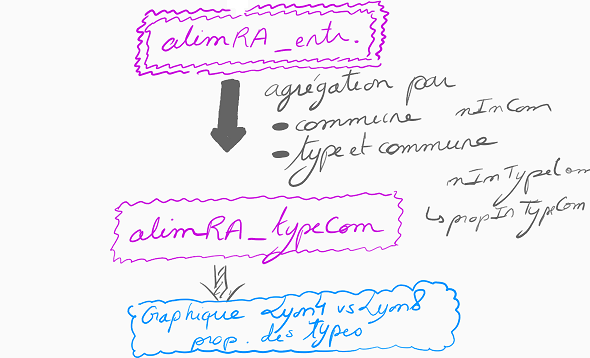 alimRA_entr.
agrégation par
• commune nInCom
• type et commune
nInTypeCom
↳ propInTypeCom
alimRA_typeCom
Graphique Lyon4 vs Lyon8
prop. des types